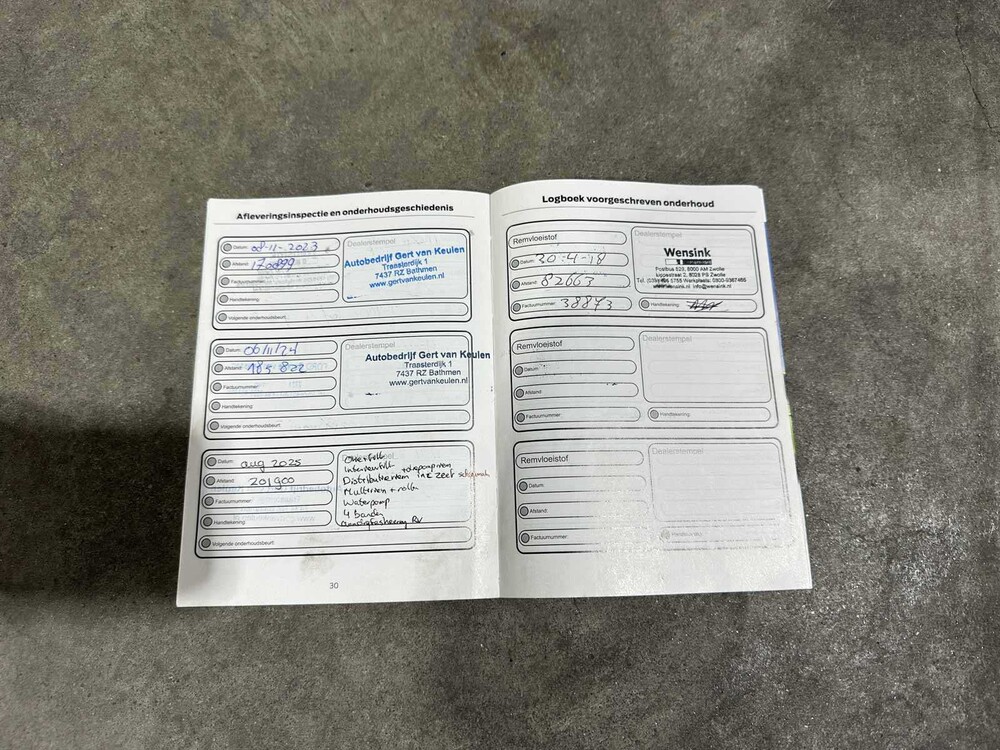 Afleveringsinspectie en onderhoudsgeschiedenis
Datum: 08-11-2023
Afstand: 170899
Factuurnummer:
Handtekening:
Volgende onderhoudsbeurt:
Dealerstempel
Autobedrijf Gert van Keulen
Traasterdijk 1
7437 RZ Bathmen
www.gertvankeulen.nl
Datum: 06/11/24
Afstand: 185 822
Factuurnummer:
Handtekening:
Volgende onderhoudsbeurt:
Dealerstempel
Autobedrijf Gert van Keulen
Traasterdijk 1
7437 RZ Bathmen
www.gertvankeulen.nl
Datum: aug 2025
Afstand: 201900
Factuurnummer:
Handtekening:
Volgende onderhoudsbeurt:
Oliefilter
Interieurfilter
Distributieriem + oliepompriem
Multiriem + rollen
Waterpomp
4 banden
RV
30
Logboek voorgeschreven onderhoud
Remvloeistof
Datum: 30-4-18
Afstand: 82663
Factuurnummer: 38873
Dealerstempel
Wensink
Postbus 529, 8000 AM Zwolle
Handtekening:
Remvloeistof
Datum:
Afstand:
Factuurnummer:
Dealerstempel
Handtekening:
Remvloeistof
Datum:
Afstand:
Factuurnummer:
Dealerstempel